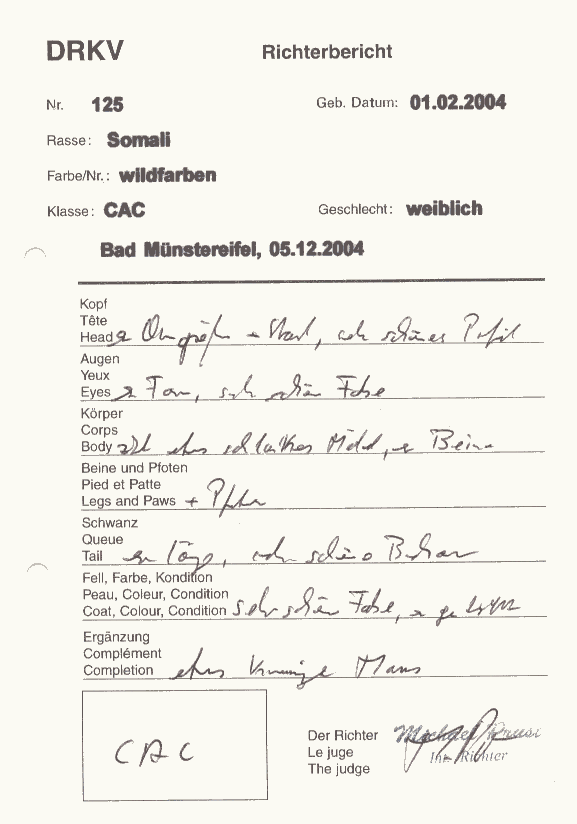 DRKV Richterbericht
Nr. 125 Geb. Datum: 01.02.2004
Rasse: Somali
Farbe/Nr.: wildfarben
Klasse: CAC Geschlecht: weiblich
Bad Münstereifel, 05.12.2004
Kopf
Tête
Head Ohrgröße + Stand, sehr schönes Profil
Augen
Yeux
Eyes Form, sehr schöne Farbe
Körper
Corps
Body Beine
Beine und Pfoten
Pied et Patte
Legs and Paws + Pfoten
Schwanz
Queue
Tail Länge, sehr schöne
Fell, Farbe, Kondition
Peau, Coleur, Condition
Coat, Colour, Condition sehr schöne Farbe,
Ergänzung
Complément
Completion Maus
CAC
Der Richter
Le juge
The judge
Int. Richter